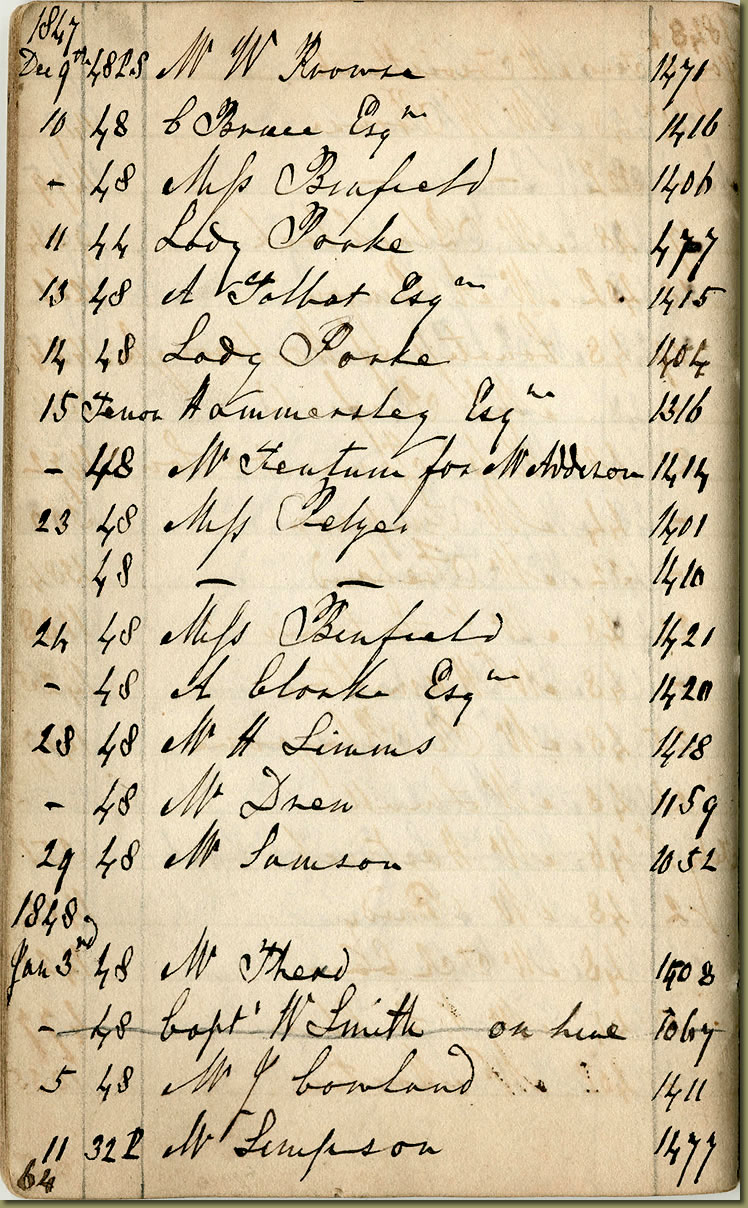 1847
Dec 9th 48 P.S Mr W Prowse 1471
10 48 C Bruce Esqre 1416
- 48 Miss Binfield 1406
11 44 Lady Parke 477
13 48 A Talbat Esqre 1415
14 48 Lady Parke 1404
15 Tenor Hammersley Esqre 1316
- 48 Mr Tentum for Mr Addison 1414
23 48 Miss Pelzer 1401
48 — — 1410
24 48 Miss Binfield 1421
- 48 A Clarke Esqre 1420
28 48 Mr H Simms 1418
- 48 Mr Drew 1159
29 48 Mr Samson 1052
1848
Jan 3rd 48 Mr Therd 1408
- 48 Capt W Smith on hire 1067
5 48 Mr J Cowland 1411
11 32 P Mr Simpson 1477
64